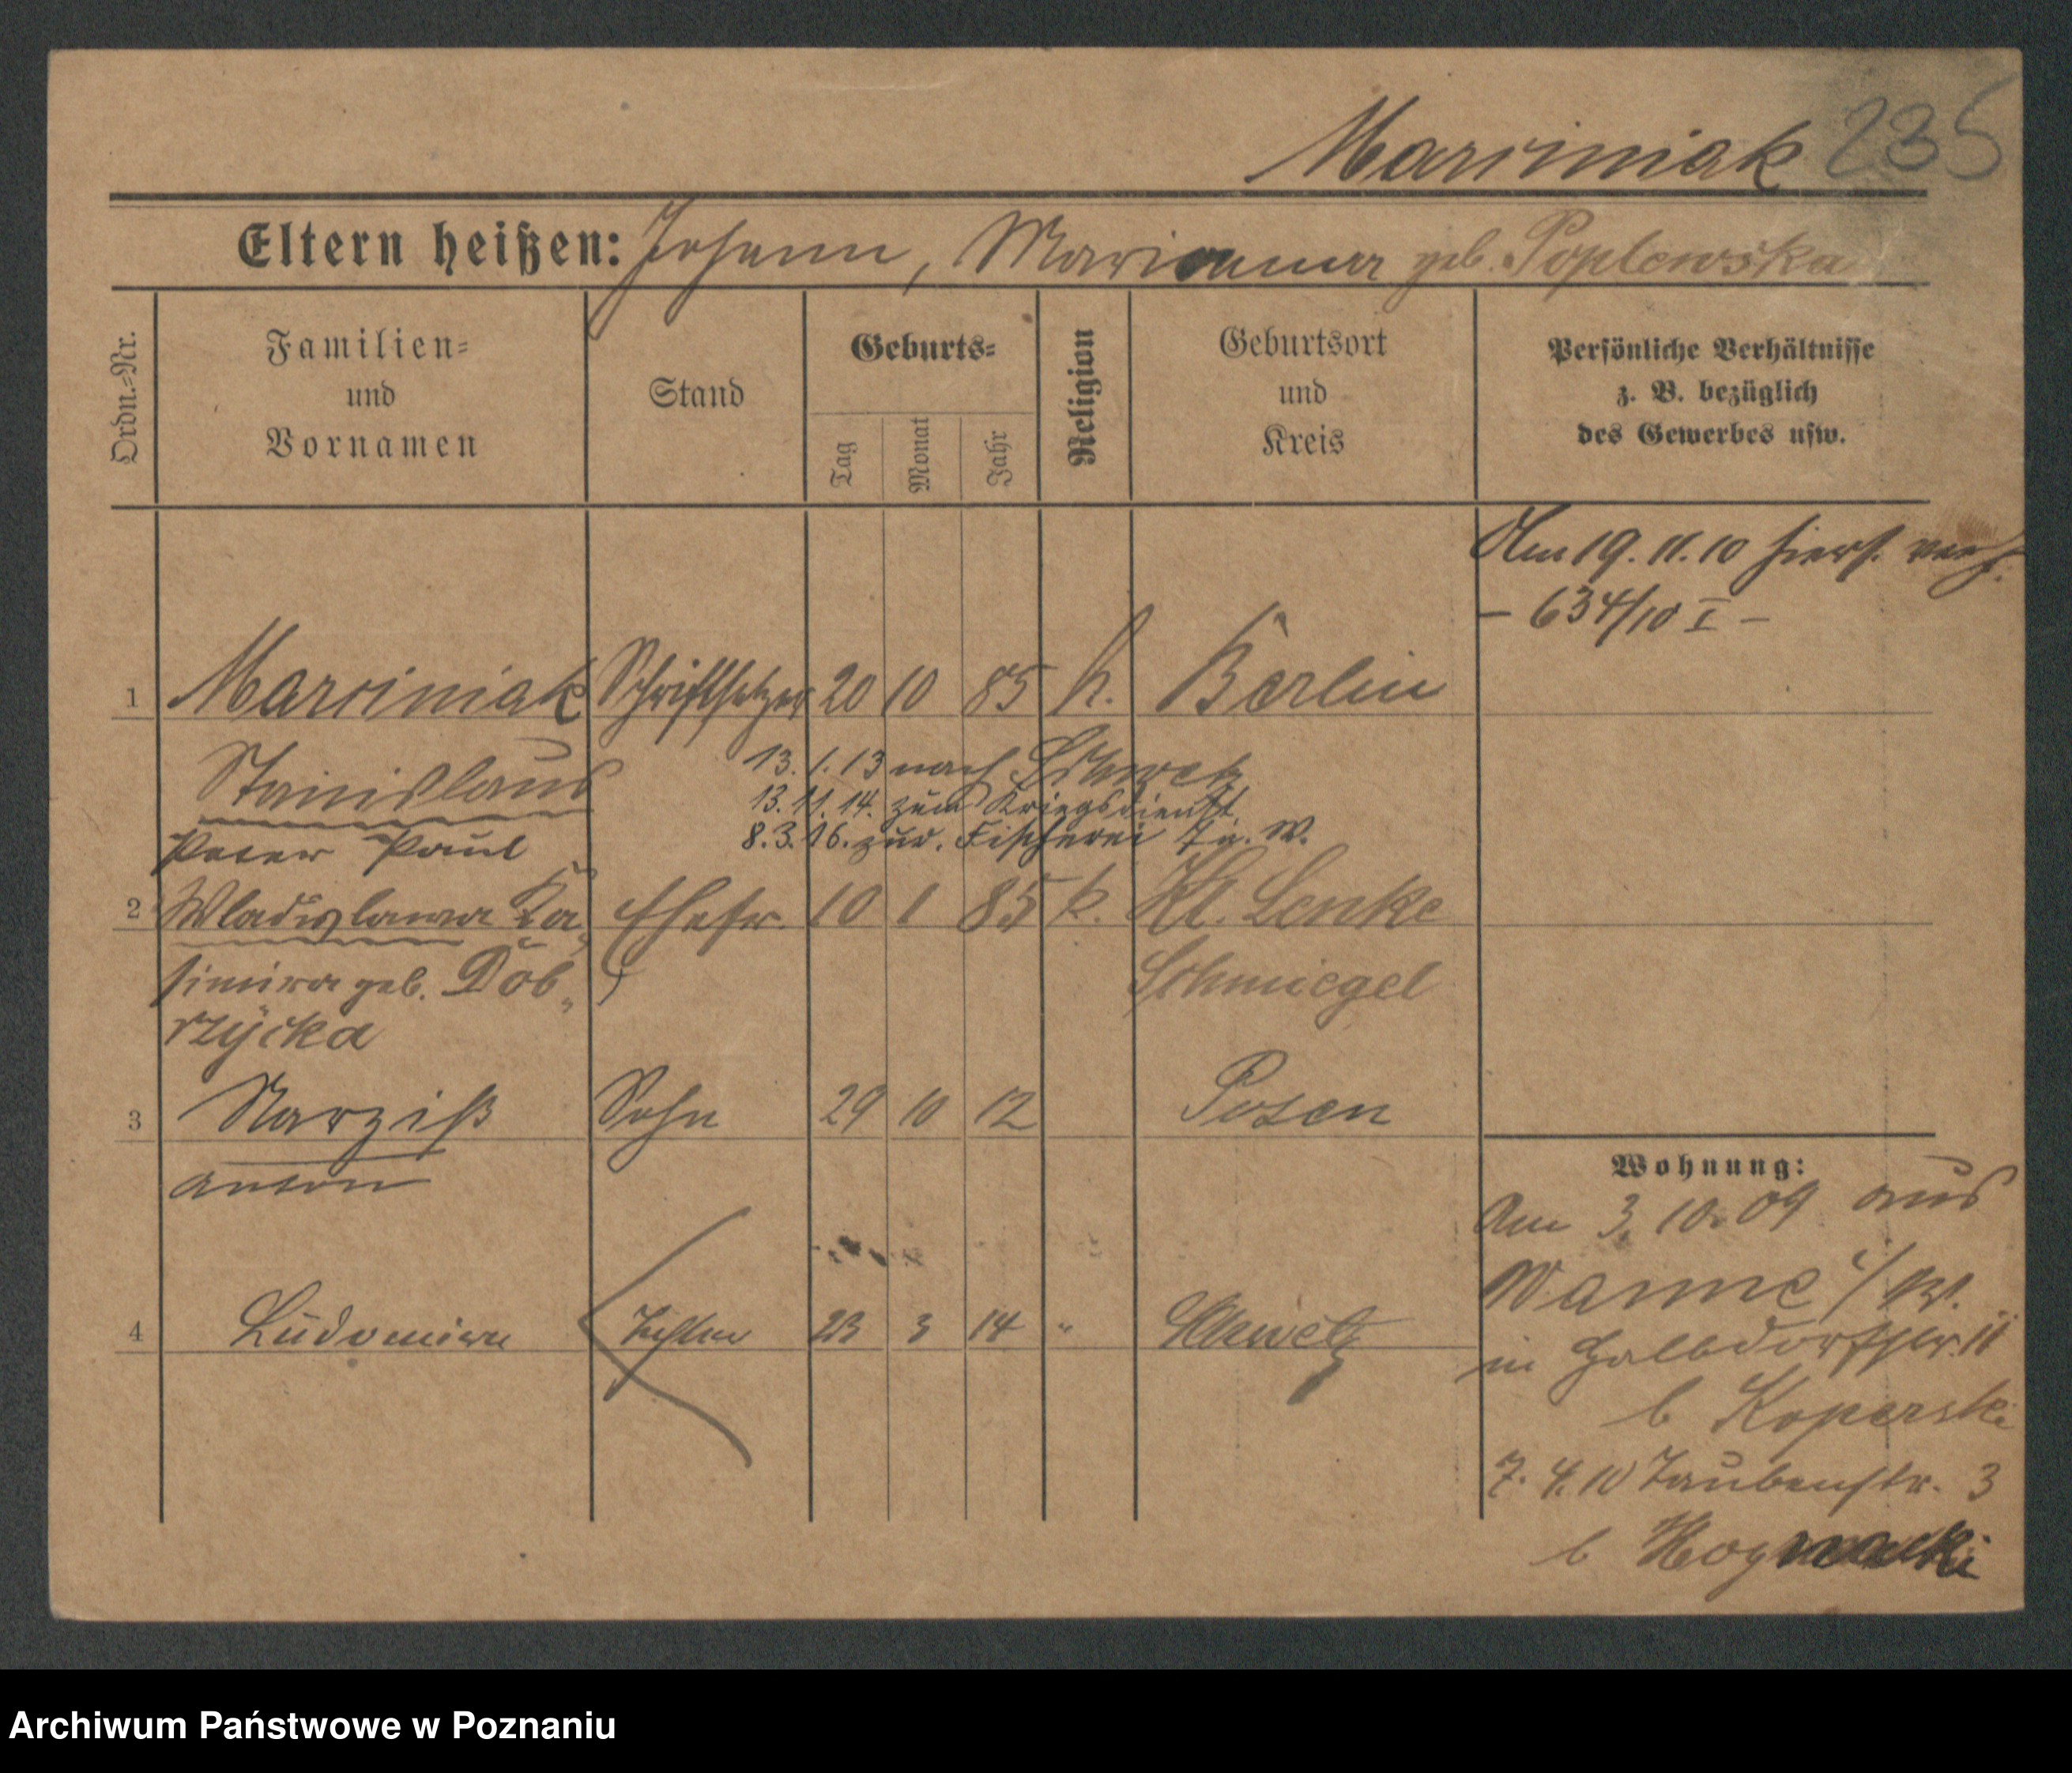 Marciniak 235
Eltern heißen: Johann, Marianna geb. Poplewska
Ordn.=Nr.
Familien=
und
Vornamen
Stand
Geburts=
Tag
Monat
Jahr
Religion
Geburtsort
und
Kreis
Persönliche Verhältnisse
z. B. bezüglich
des Gewerbes usw.
Am 19.11.10 hiers. verh.
– 634/10 I –
1 Marciniak Schriftsetzer 20 10 85 k. Berlin
Stanislaus
13.1.13 nach Schwetz
13.11.14. zum Kriegsdienst
Peter Paul
8.3.16. zur. Fischerei
2 Wladislawa Ka- Ehefr. 10 1 85 k. Kl. Lenke
simira geb. Dob- Schmiegel
rzycka
3 Narziß Sohn 29 10 12 Posen
Anton
4 Ludomira Tochter 23 3 14 " Schwetz
Wohnung:
Am 3.10.09 aus
Wanne i/W.
in Halbdorfstr. 11
b Koperski
7.4.10 Taubenstr. 3
b
Archiwum Państwowe w Poznaniu